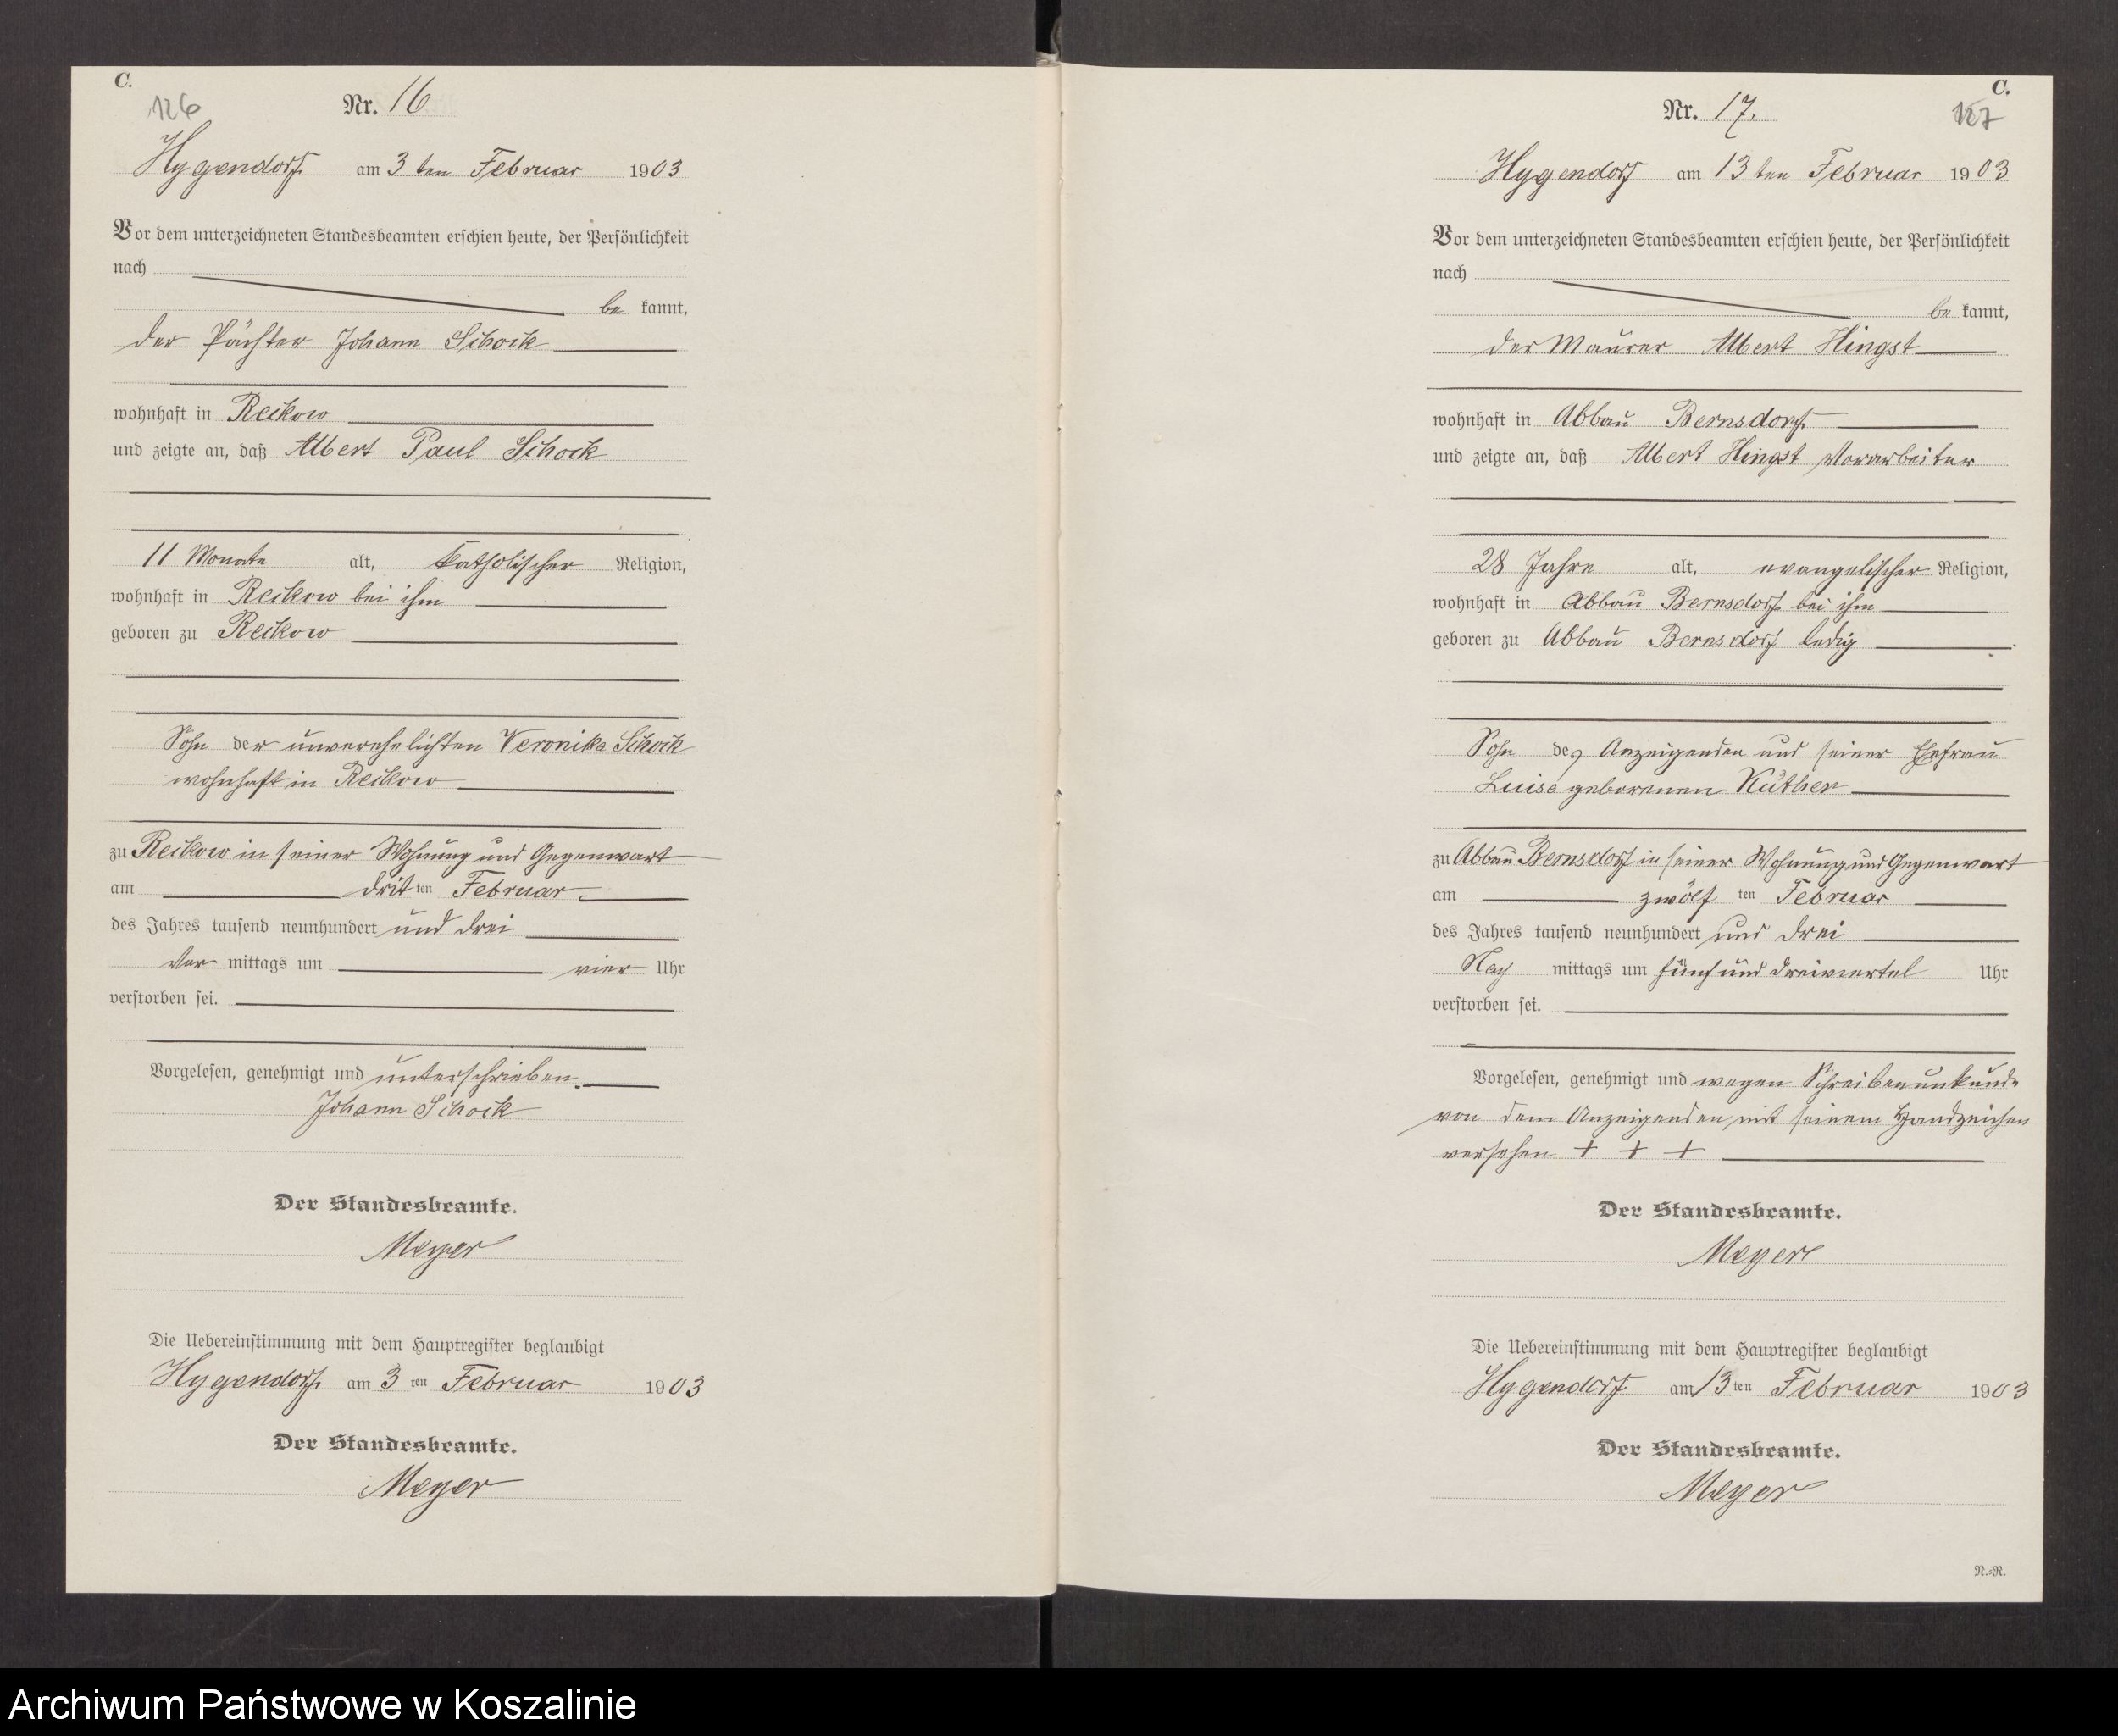 C.
126
Nr. 16
Hygendorf am 3 ten Februar 1903
Vor dem unterzeichneten Standesbeamten erschien heute, der Persönlichkeit
nach
be kannt,
der Pächter Johann Schock
wohnhaft in Reckow
und zeigte an, daß Albert Paul Schock
11 Monate alt, katholischer Religion,
wohnhaft in Reckow bei ihm
geboren zu Reckow
Sohn der unverehelichten Veronika Schock
wohnhaft in Reckow
zu Reckow in seiner Wohnung und Gegenwart
am drit ten Februar
des Jahres tausend neunhundert und drei
Vor mittags um vier Uhr
verstorben sei.
Vorgelesen, genehmigt und unterschrieben.
Johann Schock
Der Standesbeamte.
Meyer
Die Uebereinstimmung mit dem Hauptregister beglaubigt
Hygendorf am 3 ten Februar 1903
Der Standesbeamte.
Meyer
C.
127
Nr. 17.
Hygendorf am 13 ten Februar 1903
Vor dem unterzeichneten Standesbeamten erschien heute, der Persönlichkeit
nach
be kannt,
der Maurer Albert Hingst
wohnhaft in Abbau Bernsdorf
und zeigte an, daß Albert Hingst Vorarbeiter
28 Jahre alt, evangelischer Religion,
wohnhaft in Abbau Bernsdorf bei ihm
geboren zu Abbau Bernsdorf ledig
Sohn des Anzeigenden und seiner Ehefrau
Luise geborenen Küther
zu Abbau Bernsdorf in seiner Wohnung und Gegenwart
am zwölf ten Februar
des Jahres tausend neunhundert und drei
Nach mittags um fünf und dreiviertel Uhr
verstorben sei.
Vorgelesen, genehmigt und wegen Schreibenunkunde
von dem Anzeigenden mit seinem Handzeichen
versehen + + +
Der Standesbeamte.
Meyer
Die Uebereinstimmung mit dem Hauptregister beglaubigt
Hygendorf am 13 ten Februar 1903
Der Standesbeamte.
Meyer
N.=R.
Archiwum Państwowe w Koszalinie